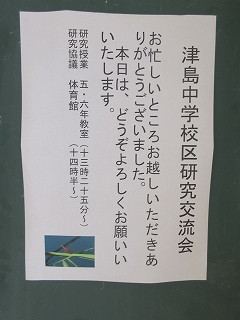 津島中学校区研究交流会
お忙しいところお越しいただきあ
りがとうございました。
本日は、どうぞよろしくお願いい
たします。
研究授業 五・六年教室（十三時二十五分～）
研究協議 体育館 （十四時半～）